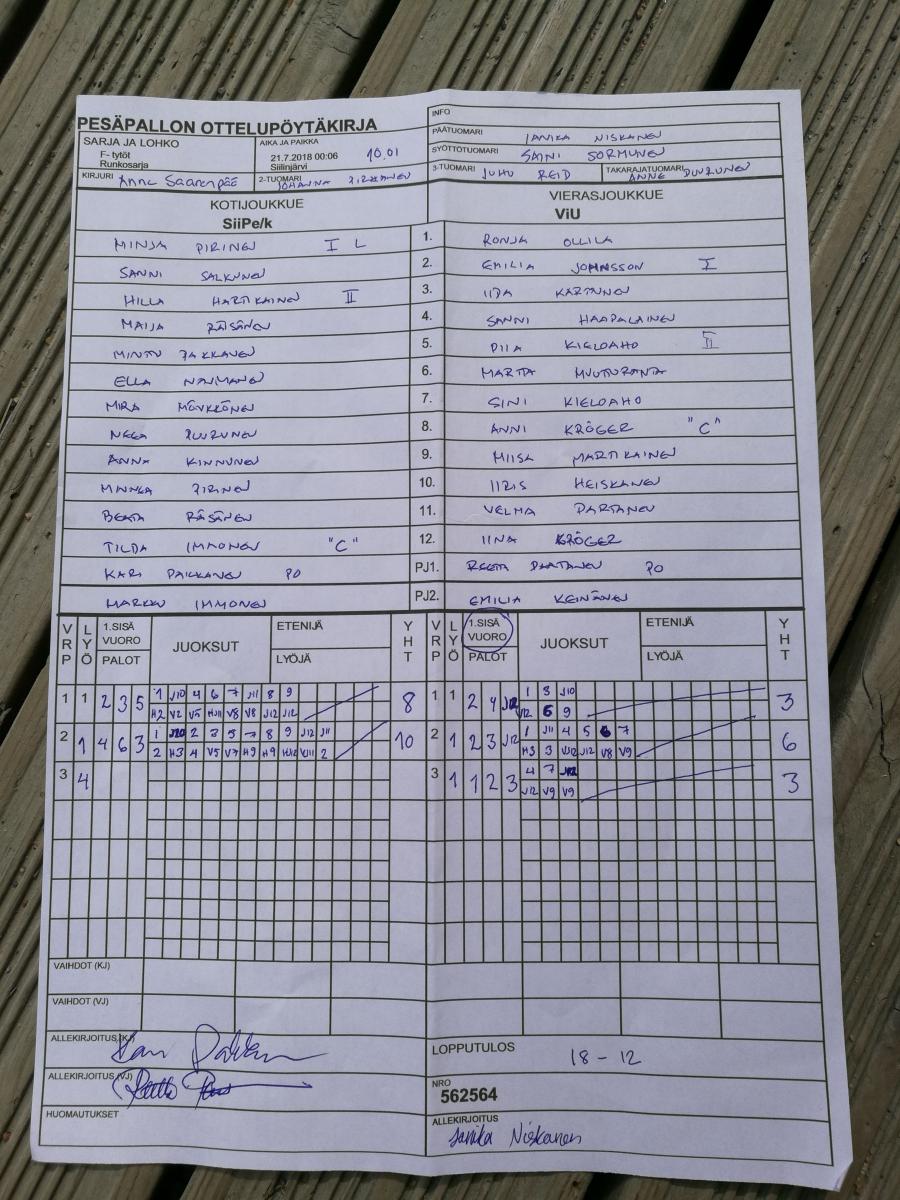 PESÄPALLON OTTELUPÖYTÄKIRJA
INFO
PÄÄTUOMARI JANIKA NISKANEN
SARJA JA LOHKO
F- tytöt
Runkosarja
AIKA JA PAIKKA
21.7.2018 00:06 10.01
Siilinjärvi
SYÖTTÖTUOMARI SAINI SORMUNEN
KIRJURI Anne Saarenpää
2-TUOMARI JOHANNA PIRKKANEN
3-TUOMARI JUHO REID
TAKARAJATUOMARI ANNE PUURUNEN
KOTIJOUKKUE
SiiPe/k
VIERASJOUKKUE
ViU
MINJA PIRINEN I L 1. RONJA OLLILA
SANNI SALKUNEN 2. EMILIA JOHNSSON I
HILLA HARTIKAINEN II 3. IIDA KARTUNEN
MAIJA RÄSÄNEN 4. SANNI HAAPALAINEN
MINTU PAKKANEN 5. PIIA KIELOAHO II
ELLA NAUMANEN 6. MARTTA MUUTURANTA
MIRA MÖYKKÖNEN 7. SINI KIELOAHO
NEEA PUURUNEN 8. ANNI KRÖGER "C"
ANNA KINNUNEN 9. MIISA MARTIKAINEN
MINNEA PIRINEN 10. IIRIS HEISKANEN
BEATA RÄSÄNEN 11. VELMA PARTANEN
TILDA IMMONEN "C" 12. IINA KRÖGER
KARI PAKKANEN PO PJ1. REETTA PAATANEN PO
MARKKU IMMONEN PJ2. EMILIA KEINÄNEN
VRP LYÖ 1.SISÄ VUORO PALOT JUOKSUT ETENIJÄ LYÖJÄ YHT
VRP LYÖ 1.SISÄ VUORO PALOT JUOKSUT ETENIJÄ LYÖJÄ YHT
1 1 2 3 5 1 J10 4 6 7 J11 8 9 8
H2 V2 V5 HJ11 V8 V8 J12 J12
1 1 2 4 J12 1 3 J10 3
V12 6 9
2 1 4 6 3 1 J10 2 3 5 7 8 9 J12 J11 10
2 H3 4 V5 V7 H9 H9 2
2 1 2 3 J12 1 J11 4 5 6 7 6
H3 3 J12 V8 V9
3 4
3 1 1 2 3 4 7 J12 3
J12 V9 V9
VAIHDOT (KJ)
VAIHDOT (VJ)
ALLEKIRJOITUS (KJ)
ALLEKIRJOITUS (VJ)
HUOMAUTUKSET
LOPPUTULOS 18 - 12
NRO
562564
ALLEKIRJOITUS
Janika Niskanen